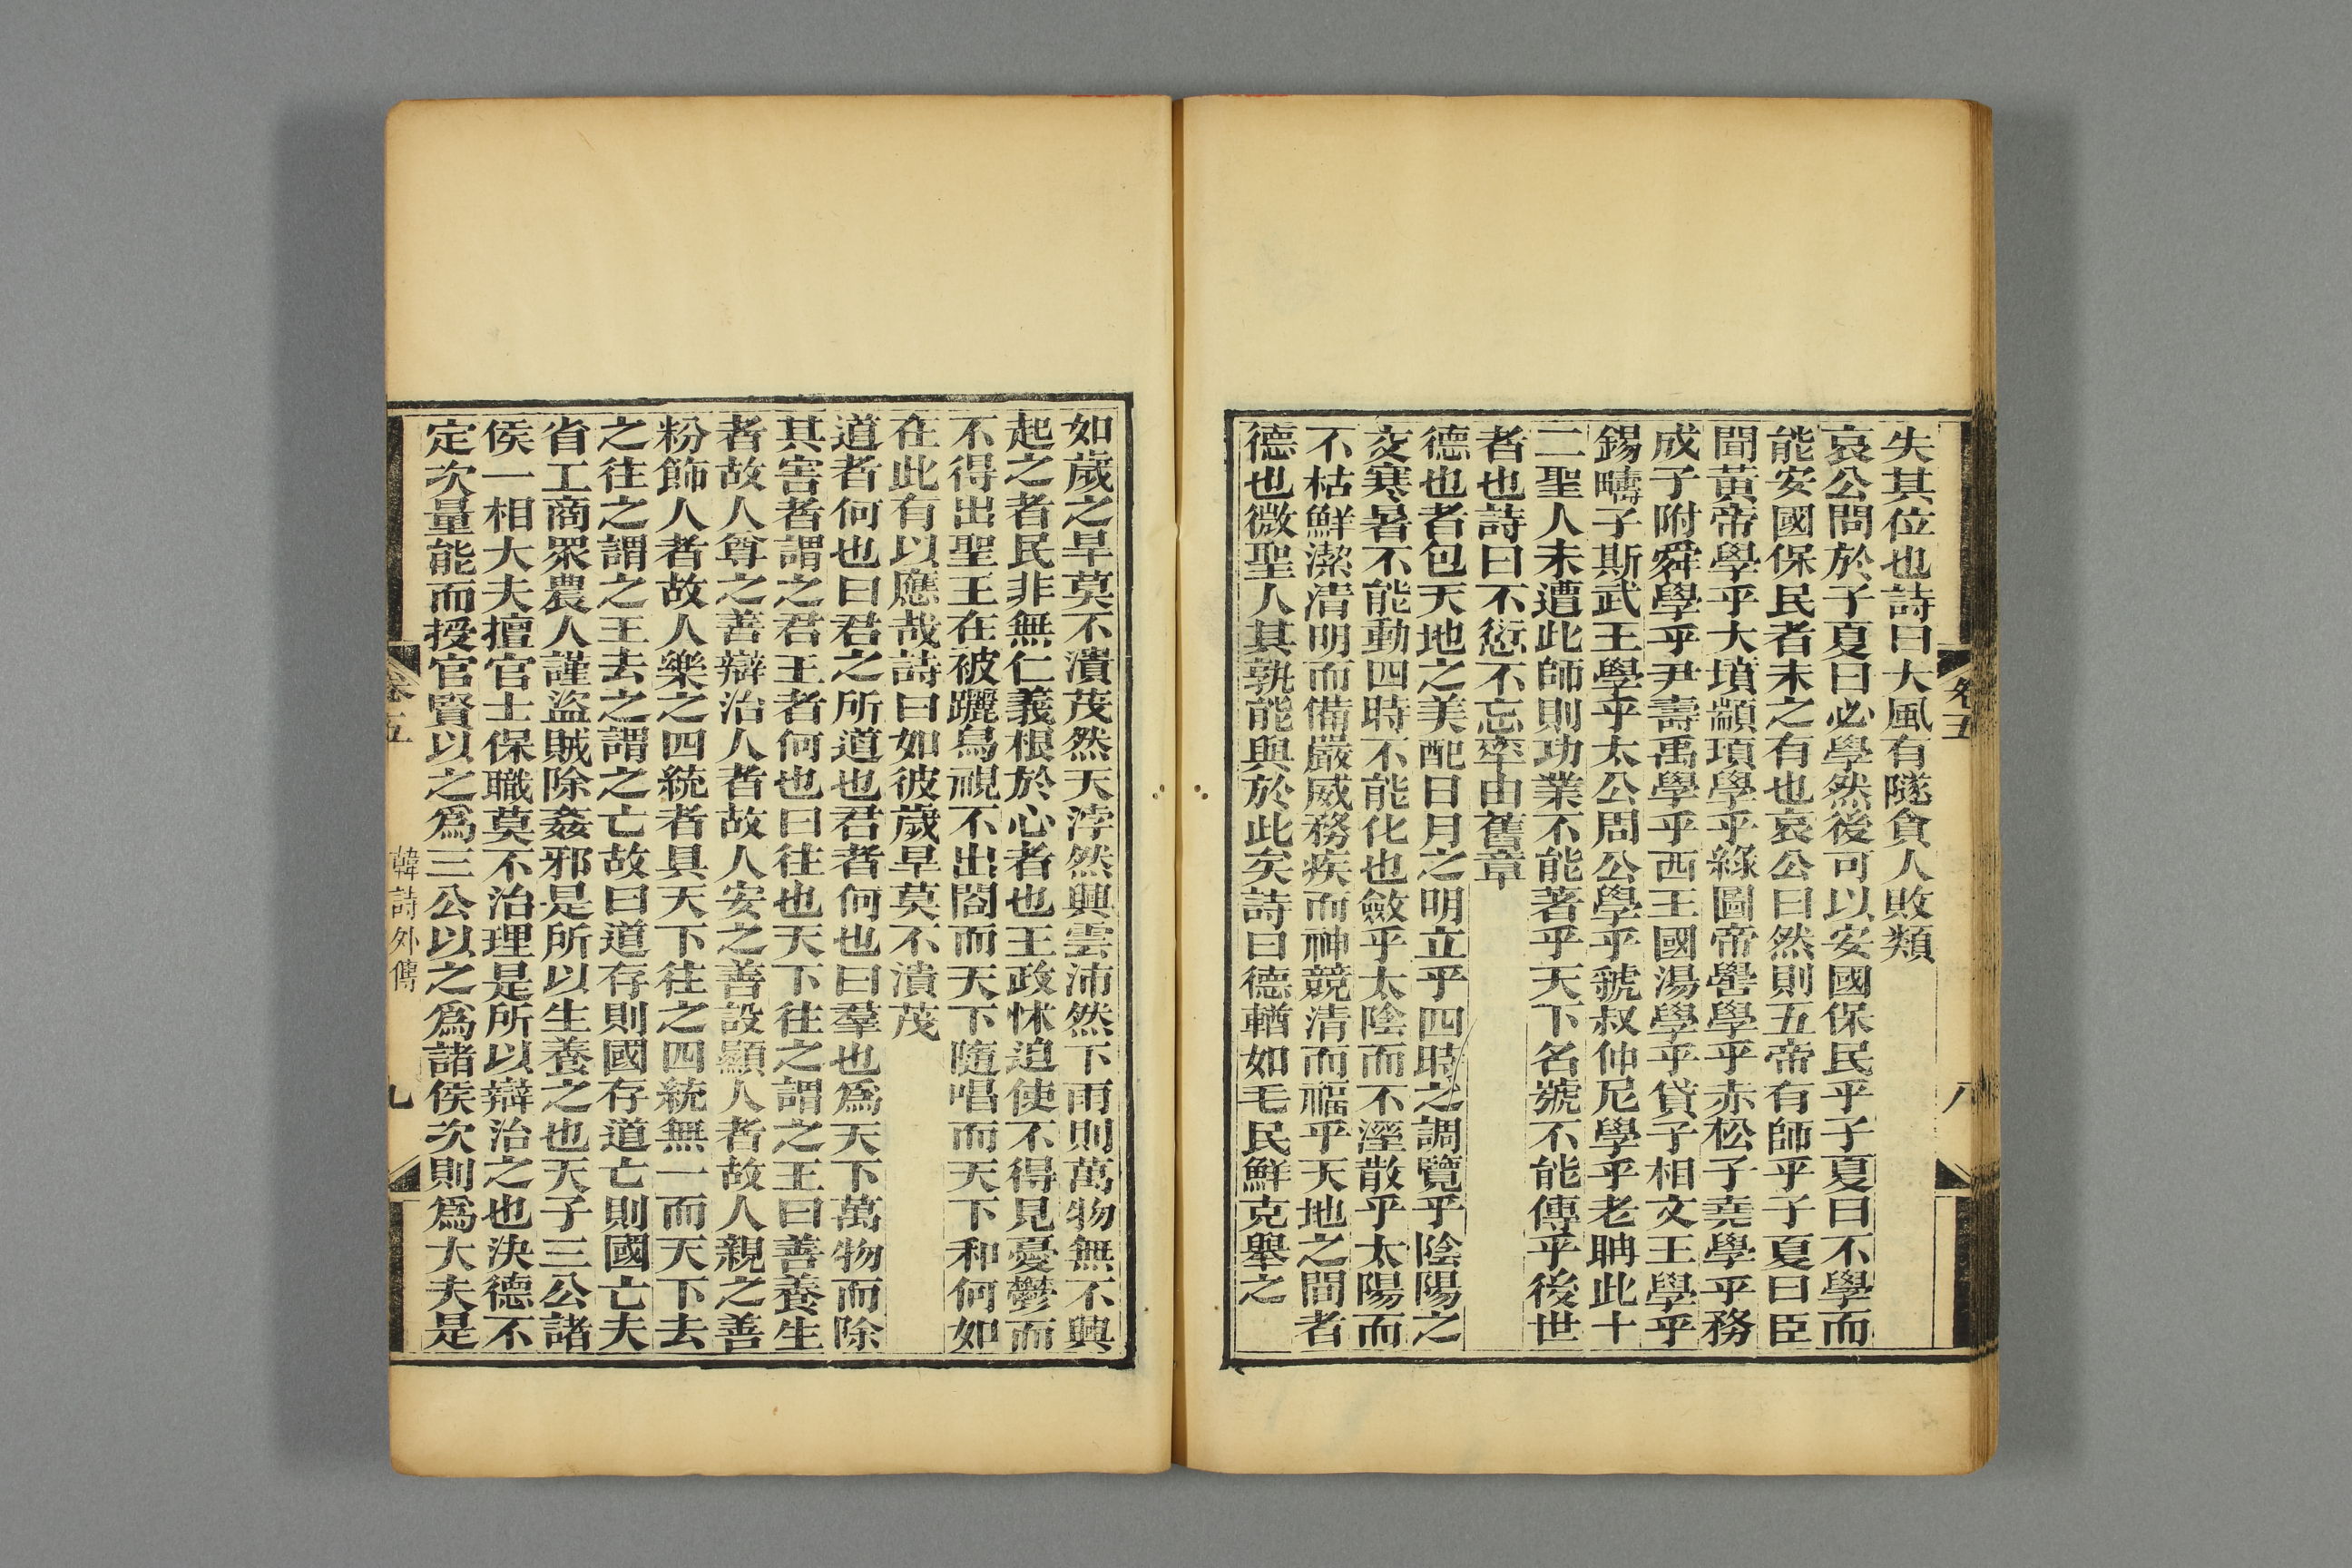 失其位也詩曰大風有隧貪人敗類
哀公問於子夏曰必學然後可以安國保民乎子夏曰不學而
能安國保民者未之有也哀公曰然則五帝有師乎子夏曰臣
聞黃帝學乎大墳顓頊學乎綠圖帝嚳學乎赤松子堯學乎務
成子附舜學乎尹壽禹學乎西王國湯學乎貸子相文王學乎
錫疇子斯武王學乎太公周公學乎虢叔仲尼學乎老聃此十
二聖人未遭此師則功業不能著乎天下名號不能傳乎後世
者也詩曰不愆不忘率由舊章
德也者包天地之美配日月之明立乎四時之調覽乎陰陽之
交寒暑不能動四時不能化也斂乎太陰而不溼散乎太陽而
不枯鮮潔清明而備嚴威務疾而神競清而福乎天地之間者
德也微聖人其孰能與於此矣詩曰德輶如毛民鮮克舉之
卷五
八
如歲之旱莫不潰茂然天浡然興雲沛然下雨則萬物無不興
起之者民非無仁義根於心者也王政怵迫使不得見憂鬱而
不得出聖王在被躧舄視不出閤而天下隨唱而天下和何如
在此有以應哉詩曰如彼歲旱莫不潰茂
道者何也曰君之所道也君者何也曰羣也爲天下萬物而除
其害者謂之君王者何也曰往也天下往之謂之王曰善養生
者故人尊之善辯治人者故人安之善設顯人者故人親之善
粉飾人者故人樂之四統者具天下往之四統無一而天下去
之往之謂之王去之謂之亡故曰道存則國存道亡則國亡夫
省工商眾農人謹盜賊除姦邪是所以生養之也天子三公諸
侯一相大夫擅官士保職莫不治理是所以辯治之也決德不
定次量能而授官賢以之爲三公以之爲諸侯次則爲大夫是
卷五
韓詩外傳
九